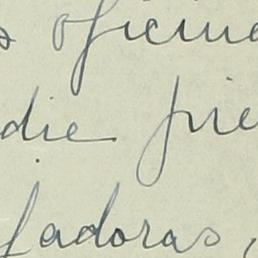 s oficin
die pie
fadoras,